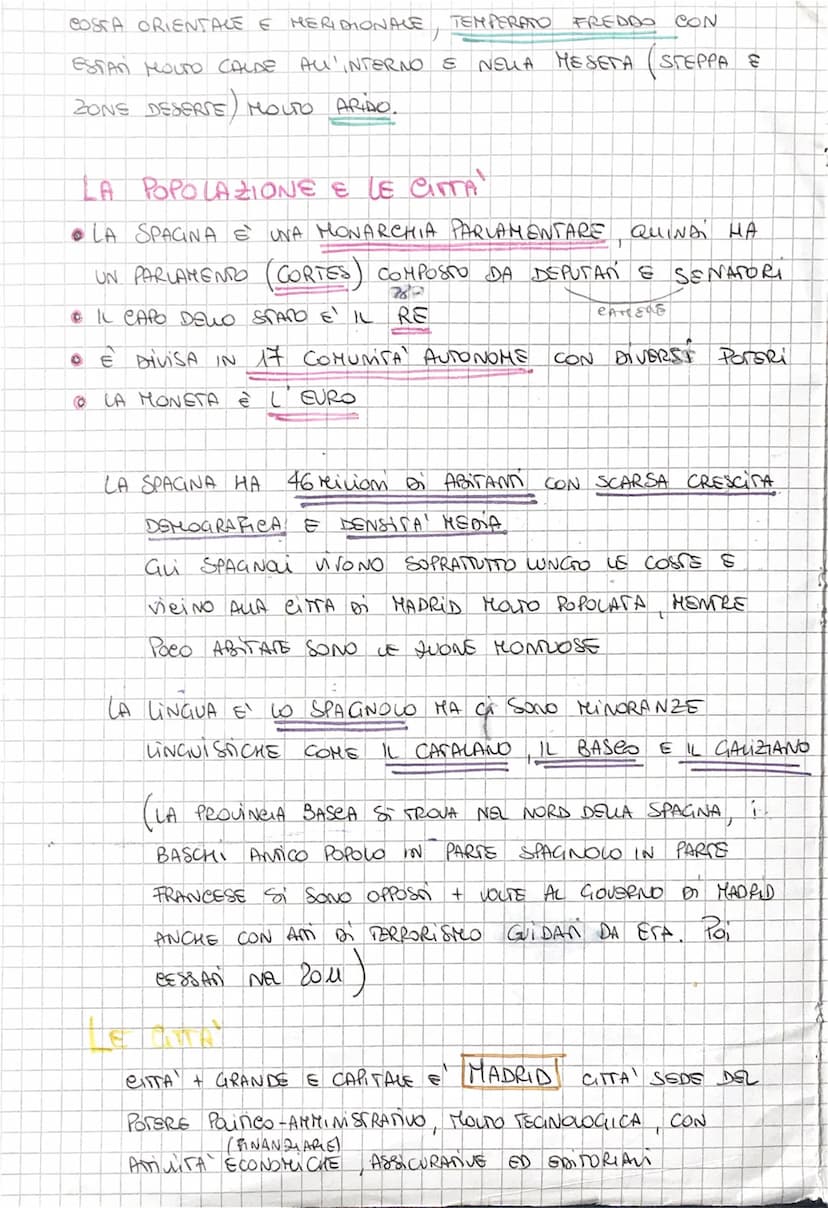 COSTA ORIENTALE E MERIDIONALE, TEMPERATO FREDDO CON
ESTATI MOLTO CALDE ALL'INTERNO E NELLA MESETA (STEPPA E
ZONE DESERTE) MOLTO ARIDO.
LA POPOLAZIONE E LE CITTA'
• LA SPAGNA È UNA MONARCHIA PARLAMENTARE, QUINDI HA
UN PARLAMENTO (CORTES) COMPOSTO DA DEPUTATI E SENATORI
CAMERE
• IL CAPO DELLO STATO E' IL RE
• È DIVISA IN 17 COMUNITA' AUTONOME CON DIVERSI POTERI
• LA MONETA È L'EURO
LA SPAGNA HA 46 MILIONI DI ABITANTI CON SCARSA CRESCITA
DEMOGRAFICA E DENSITA' MEDIA
GLI SPAGNOLI VIVONO SOPRATTUTTO LUNGO LE COSTE E
VICINO ALLA CITTA DI MADRID MOLTO POPOLATA, MENTRE
POCO ABITATE SONO LE ZUONE MONTUOSE
LA LINGUA E' LO SPAGNOLO MA CI SONO MINORANZE
LINGUISTICHE COME IL CATALANO, IL BASCO E IL GALIZIANO
(LA PROVINCIA BASCA SI TROVA NEL NORD DELLA SPAGNA, i
BASCHI ANTICO POPOLO IN PARTE SPAGNOLO IN PARTE
FRANCESE SI SONO OPPOSTI + VOLTE AL GOVERNO DI MADRID
ANCHE CON ATTI DI TERRORISMO GUIDATI DA ETA. POI
CESSATI NEL 2011)
LE CITTA'
CITTA' + GRANDE E CAPITALE E' MADRID CITTA' SEDE DEL
POTERE POLITICO-AMMINISTRATIVO, MOLTO TECNOLOGICA, CON
(FINANZIARIE)
ATTIVITA' ECONOMICHE, ASSICURATIVE ED EDITORIALI